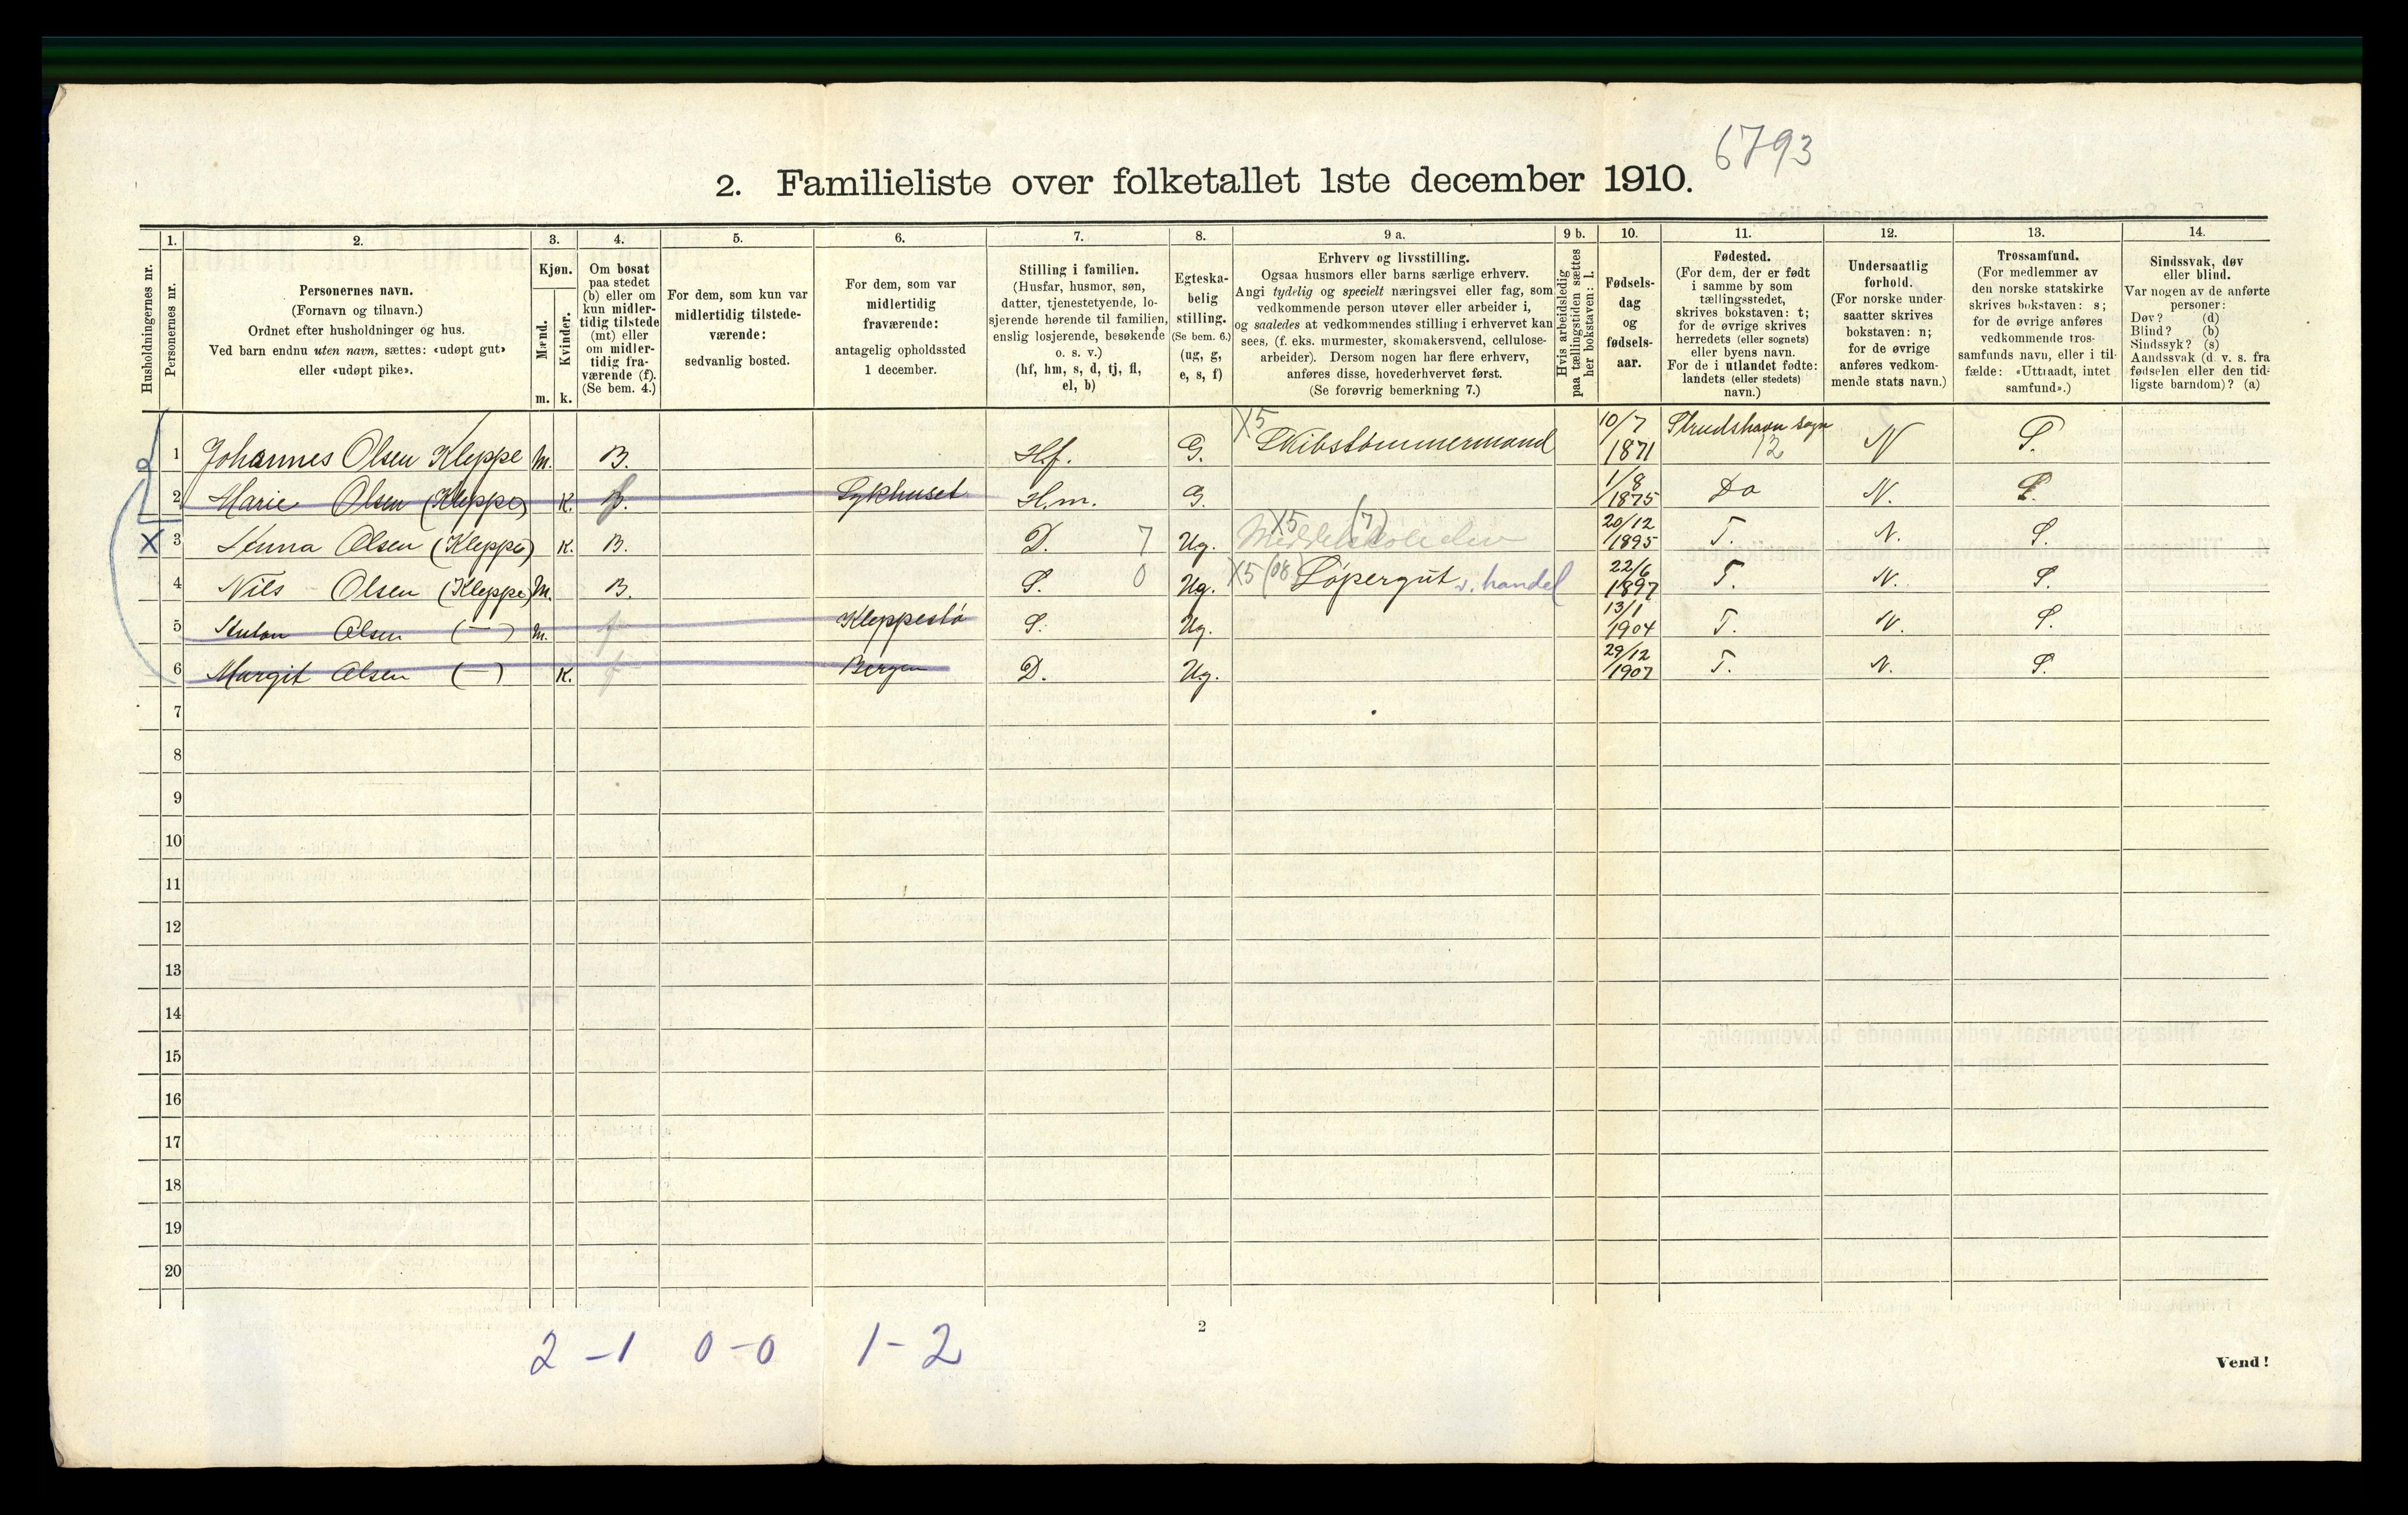 6793
2. Familieliste over folketallet 1ste december 1910.
Husholdningernes nr.
1.
Personernes nr.
2.
Personernes navn.
(Fornavn og tilnavn.)
Ordnet efter husholdninger og hus.
Ved barn endnu uten navn, sættes: «udøpt gut»
eller «udøpt pike».
3.
Kjøn.
Mænd.
Kvinder.
m. k.
4.
Om bosat
paa stedet
(b) eller om
kun midler-
tidig tilstede
(mt) eller
om midler-
tidig fra-
værende (f).
(Se bem. 4.)
5.
For dem, som kun var
midlertidig tilstede-
værende:
sedvanlig bosted.
6.
For dem, som var
midlertidig
fraværende:
antagelig opholdssted
1 december.
7.
Stilling i familien.
(Husfar, husmor, søn,
datter, tjenestetyende, lo-
sjerende hørende til familien,
enslig losjerende, besøkende
o. s. v.)
(hf, hm, s, d, tj, fl,
el, b)
8.
Egteska-
belig
stilling.
(Se bem. 6.)
(ug, g,
e, s, f)
9 a.
Erhverv og livsstilling.
Ogsaa husmors eller barns særlige erhverv.
Angi tydelig og specielt næringsvei eller fag, som
vedkommende person utøver eller arbeider i,
og saaledes at vedkommendes stilling i erhvervet kan
sees, (f. eks. murmester, skomakersvend, cellulose-
arbeider). Dersom nogen har flere erhverv,
anføres disse, hovederhvervet først.
(Se forøvrig bemerkning 7.)
9 b.
Hvis arbeidsledig
paa tællingstiden sættes
her bokstaven: l.
10.
Fødsels-
dag
og
fødsels-
aar.
11.
Fødested.
(For dem, der er født
i samme by som
tællingsstedet,
skrives bokstaven: t;
for de øvrige skrives
herredets (eller sognets)
eller byens navn.
For de i utlandet fødte:
landets (eller stedets)
navn.)
12.
Undersaatlig
forhold.
(For norske under-
saatter skrives
bokstaven: n;
for de øvrige
anføres vedkom-
mende stats navn.)
13.
Trossamfund.
(For medlemmer av
den norske statskirke
skrives bokstaven: s;
for de øvrige anføres
vedkommende tros-
samfunds navn, eller i til-
fælde: «Uttraadt, intet
samfund».)
14.
Sindssvak, døv
eller blind.
Var nogen av de anførte
personer:
Døv? (d)
Blind? (b)
Sindssyk? (s)
Aandssvak (d. v. s. fra
fødselen eller den tid-
ligste barndom)? (a)
1 Johannes Olsen Kleppe M. B. H.f. G. X5 Skibstømmermand 10/7 1871 Strudshavn sogn 12 N S.
2 Marie Olsen (Kleppe) K. B. f. Sykhuset H.m. G. 1/8 1875 Do N. S.
X 3 Olsen (Kleppe) K. B. D. 7 Ug. X5 (7) Middelskoleelev 20/12 1895 T. N. S.
4 Nils Olsen (Kleppe) M. B. S. 0 Ug. X5 (08) Løpergut v. handel 22/6 1897 T. N. S.
5 Anton Olsen (—) M. f Kleppestø S. Ug. 13/1 1904 T. N. S.
6 Margit Olsen (—) K. f Bergen D. Ug. 29/12 1907 T. N. S.
7
8
9
10
11
12
13
14
15
16
17
18
19
20
2 - 1 0 - 0 1 - 2
2
Vend!